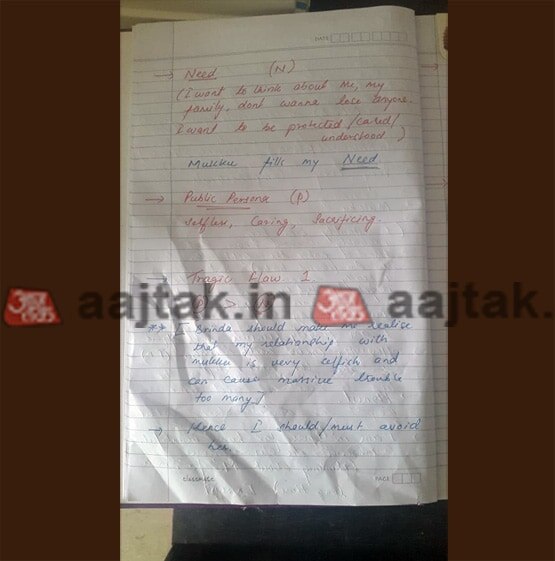 DATE
→ Need (N)
(I want to think about me, my
family, dont wanna lose anyone.
I want to be protected/cared/
understood)
Mukku fills my Need
→ Public Persona (P)
Selfless, Caring, Sacrificing.
→ Tragic flaw 1
P >
आज तक aajtak.in आज तक aajtak.
** [ Brinda should make me realise
that my relationship with
mukku is very selfish and
can cause massive trouble
too many/
→ Hence I should/must avoid
her.
classmate
PAGE